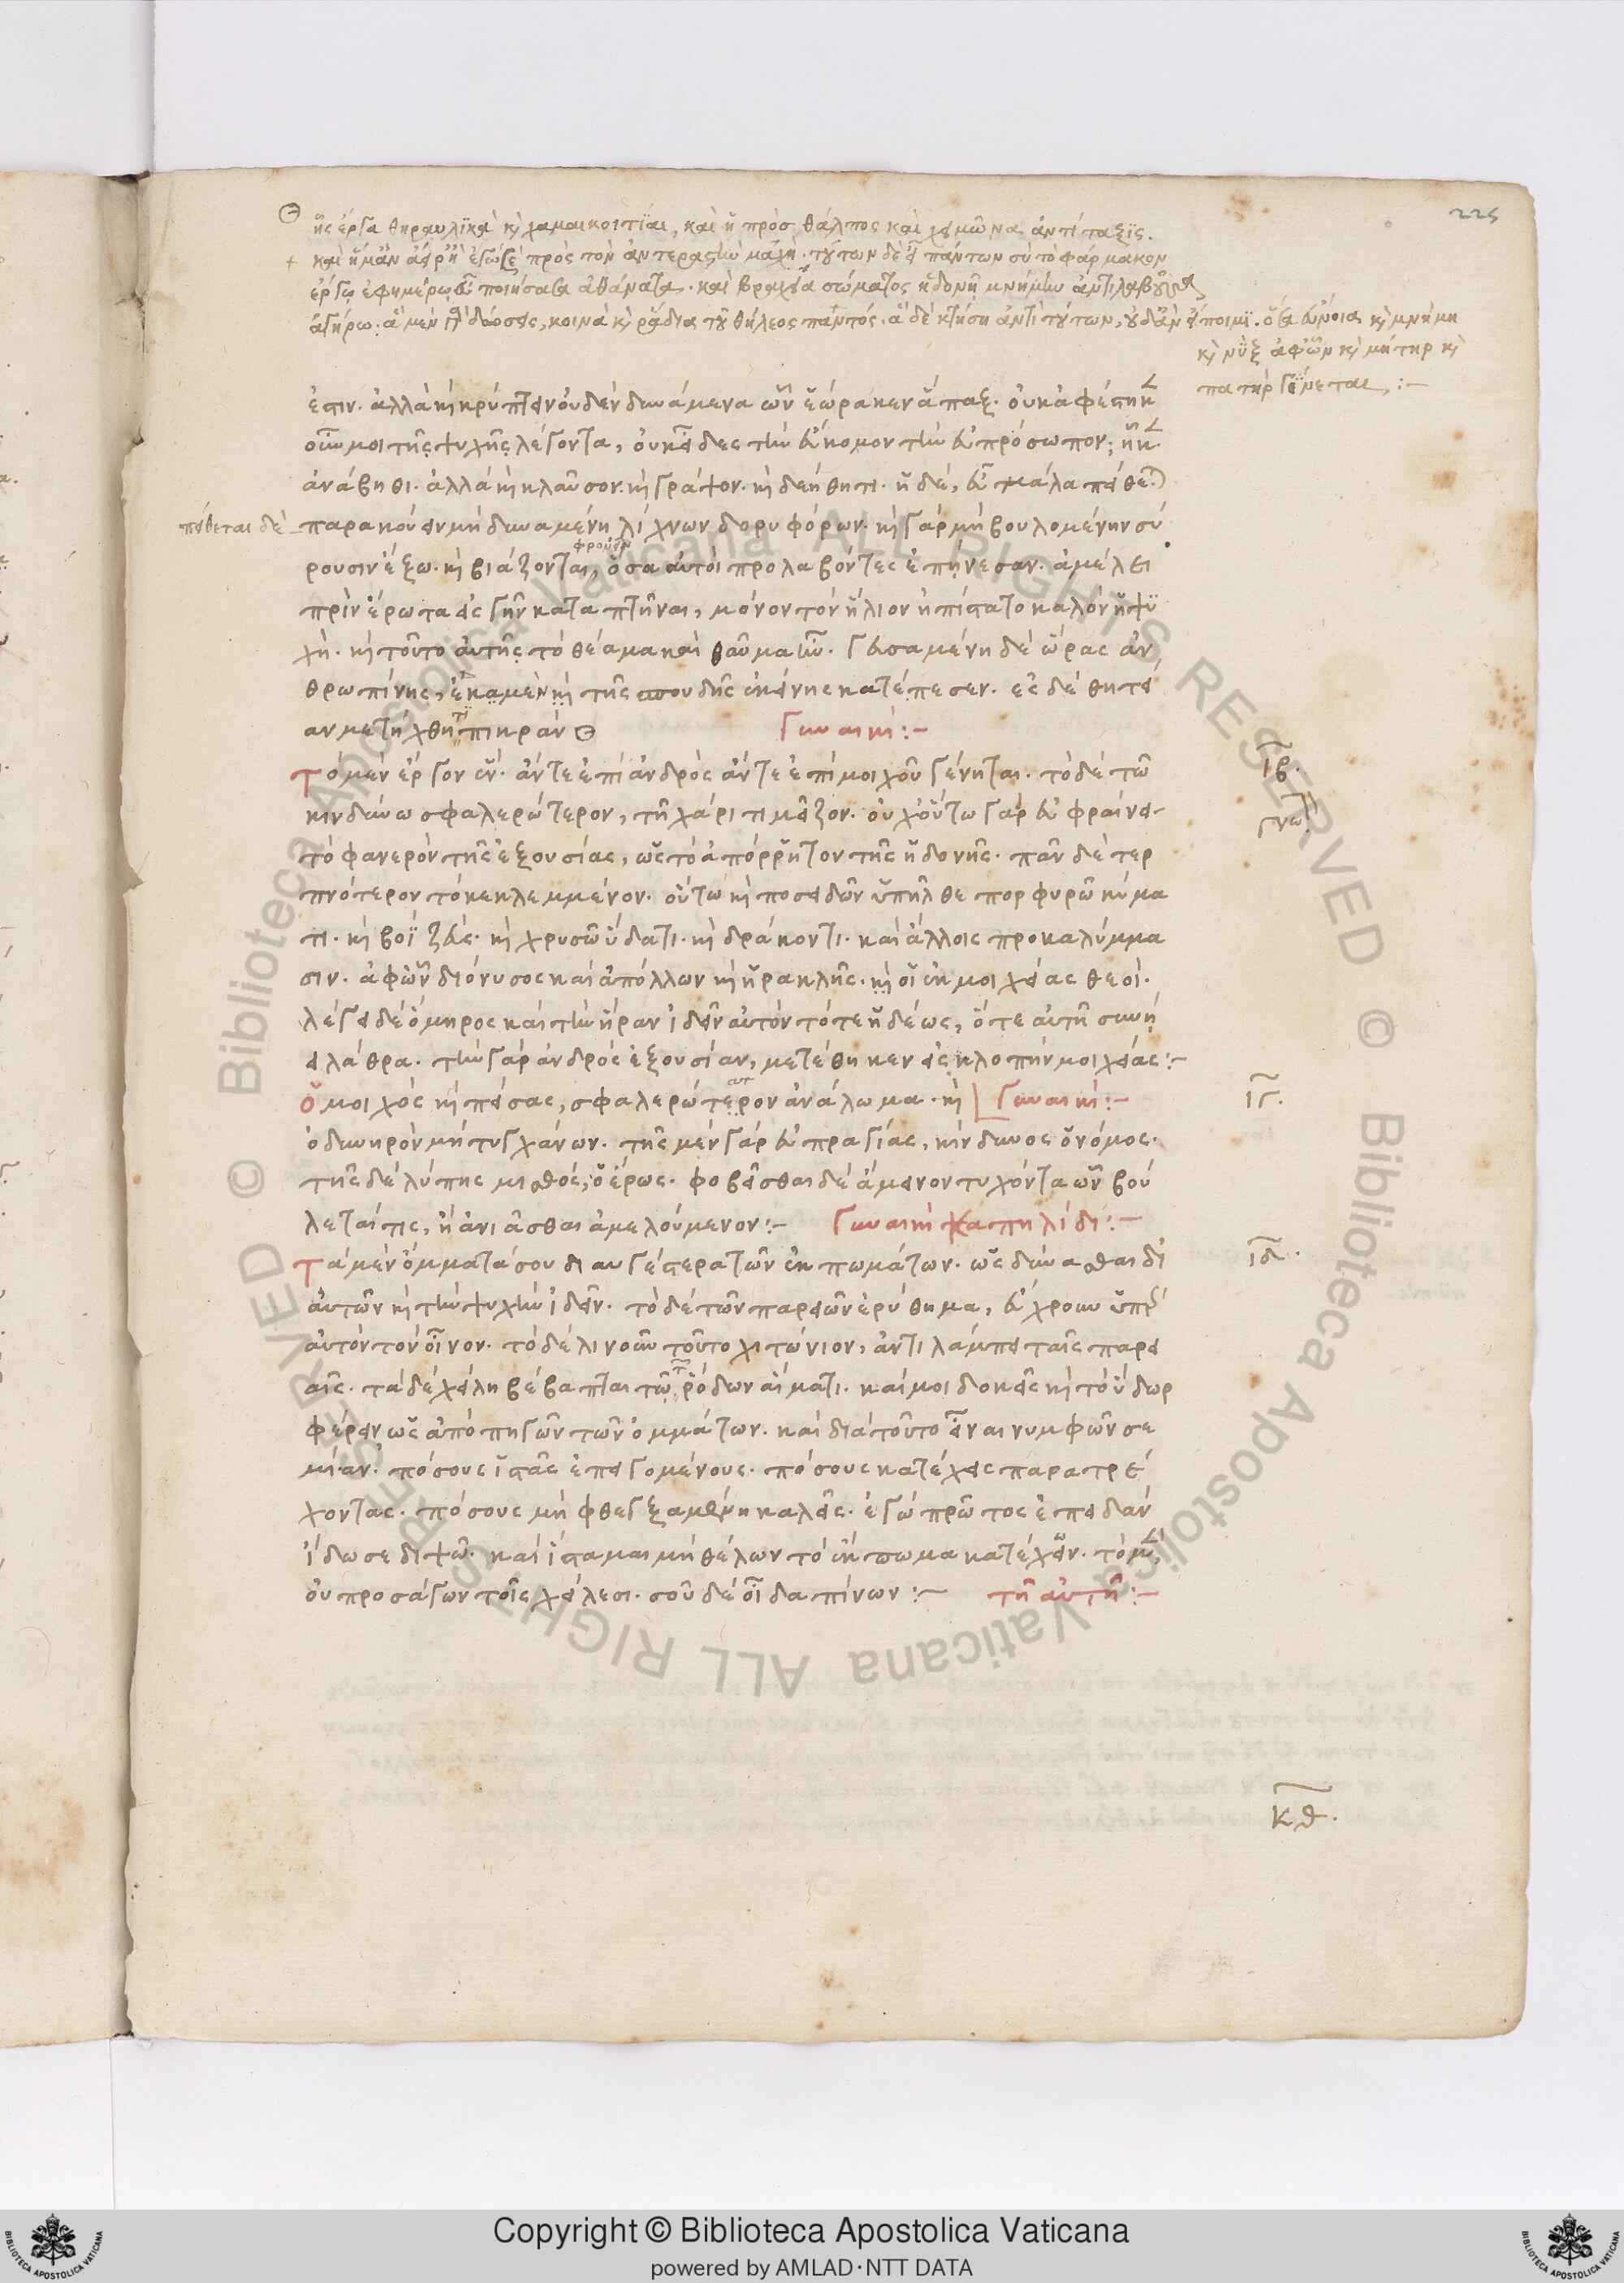 225
ἧς ἔργα θηραυλικὰ κὶ χαμαικοιτίαι, καὶ ἡ πρὸς θάλπος καὶ χειμῶνα ἀντίταξις.
πρὸς τὸν ἀντεραστὴν μάχη. τούτων δὲ πάντων σὺ τὸ φάρμακον
ἔργῳ ἐφημέρῳ ποιήσασα ἀθάνατα. καὶ βραχεία σώματος ἡδονῆ μνήμην
ἀγήρω. ἃ μὲν δώσεις, κοινὰ κὶ ῥάδια τοῦ θήλεος παντός. ἃ δὲ κτήση ἀντὶ τούτων, οὐδ᾽ ἂν εἴποιμι. ὅσα εὔνοια κὶ μνήμη
κὶ νὺξ ἀφ᾽ ὧν κὶ μήτηρ κὶ
πατὴρ γίνεται :-
ἐστιν. ἀλλὰ κὶ κρύπτειν οὐδὲν δυνάμενα ὧν ἑώρακεν ἅπαξ. οὐκ ἀφέστηκε
οἴομαι τῆς ψυχῆς λέγοντα, οὐκ εἶδες τὴν εὔκομον τὴν εὐπρόσωπον;
ἀνάβηθι. ἀλλὰ κὶ κλαῦσον. κὶ γράψον. κὶ δεήθητι. ἡ δέ, εὖ μάλα πείθε
πείθεται δὲ
παρακούειν μὴ δυναμένη λίχνων δορυφόρων. κὶ γὰρ μὴ βουλομένην σύ
ρουσιν ἔξω. κὶ βιάζονται, φρουρεῖν ὅσα αὐτοὶ προλαβόντες ἐπῄνεσαν. ἀμέλει
πρὶν ἔρωτα εἰς γῆν καταπτῆναι, μόνον τὸν ἥλιον ἠπίστατο καλὸν ἡ ψυ
χή. κὶ τοῦτο αὐτῆς τὸ θέαμα καὶ θαῦμα ἦν. γευσαμένη δὲ ὥρας ἀν
θρωπίνης, ἐκα μὲν κὶ τῆς σπουδῆς ἐκείνης κατέπεσεν. εἰς δὲ θητεί
αν μετήχθη πικράν
Γυναικί :-
Τὸ μὲν ἔργον ἕν. ἄν τε ἐπὶ ἀνδρὸς ἄν τε ἐπὶ μοιχοῦ γένηται. τὸ δὲ τῶ
ιβ.
κινδύνω σφαλερώτερον, τῆ χάριτι μεῖζον. οὐχ οὕτω γὰρ εὐφραίνει
γνω
τὸ φανερὸν τῆς ἐξουσίας, ὡς τὸ ἀπόρρητον τῆς ἡδονῆς. πᾶν δὲ τερ
πνότερον τὸ κεκλεμμένον. οὕτω κὶ ποσειδῶν ὑπῆλθε πορφυρῶ κύμα
τι. κὶ βοῒ ζεύς. κὶ χρυσῶ ὕδατι. κὶ δράκοντι. καὶ ἄλλοις προκαλύμμα
σιν. ἀφ᾽ ὧν διόνυσος καὶ ἀπόλλων κὶ ἡρακλῆς. κὶ οἱ ἐκ μοιχείας θεοί.
λέγει δὲ ὅμηρος καὶ τὴν ἥραν ἰδεῖν αὐτὸν τότε ἡδέως, ὅτε αὐτῆ συνή
ει λάθρα. τὴν γὰρ ἀνδρὸς ἐξουσίαν, μετέθηκεν εἰς κλοπὴν μοιχείας :-
Ὁ μοιχὸς κὶ πείσας, σφαλερώτερον ἀνάλωμα. κὶ
Γυναικί :-
ιγ.
ὀδυνηρὸν μὴ τυγχάνων. τῆς μὲν γὰρ εὐπραγίας, κίνδυνος ὁ νόμος.
τῆς δὲ λύπης μισθός, ὁ ἔρως. φοβεῖσθαι δὲ ἄμεινον τυχόντα ὧν βού
λεταί τις, ἢ ἀνιᾶσθαι ἀμελούμενον :-
Γυναικὶ καπηλίδι :-
Τὰ μὲν ὄμματά σου διαυγέστερα τῶν ἐκπωμάτων. ὡς δύνασθαι δι᾽
ιδ.
αὐτῶν κὶ τὴν ψυχὴν ἰδεῖν. τὸ δὲ τῶν παρειῶν ἐρύθημα, εὔχρουν ὑπὲρ
αὐτὸν τὸν οἶνον. τὸ δὲ λινοῦν τοῦτο χιτώνιον, ἀντιλάμπει ταῖς παρει
αῖς. τὰ δὲ χείλη βέβαπται τῶ ῥόδων αἵματι. καί μοι δοκεῖς κὶ τὸ ὕδωρ
φέρειν ὡς ἀπὸ πηγῶν τῶν ὀμμάτων. καὶ διὰ τοῦτο εἶναι νυμφῶν σε
μίαν. πόσους ἱστᾶς ἐπειγομένους. πόσους κατέχεις παρατρέ
χοντας. πόσους μὴ φθεγξαμένη καλεῖς. ἐγὼ πρῶτος ἐπειδὰν
ἴδω σε διψῶ. καὶ ἵσταμαι μὴ θέλων τὸ ἔκπωμα κατέχειν. τὸ μὲν
οὐ προσάγων τοῖς χείλεσι. σοῦ δὲ οἶδα πίνων :-
τῆ αὐτῆ :-
κθ.
Copyright © Biblioteca Apostolica Vaticana
powered by AMLAD·NTT DATA